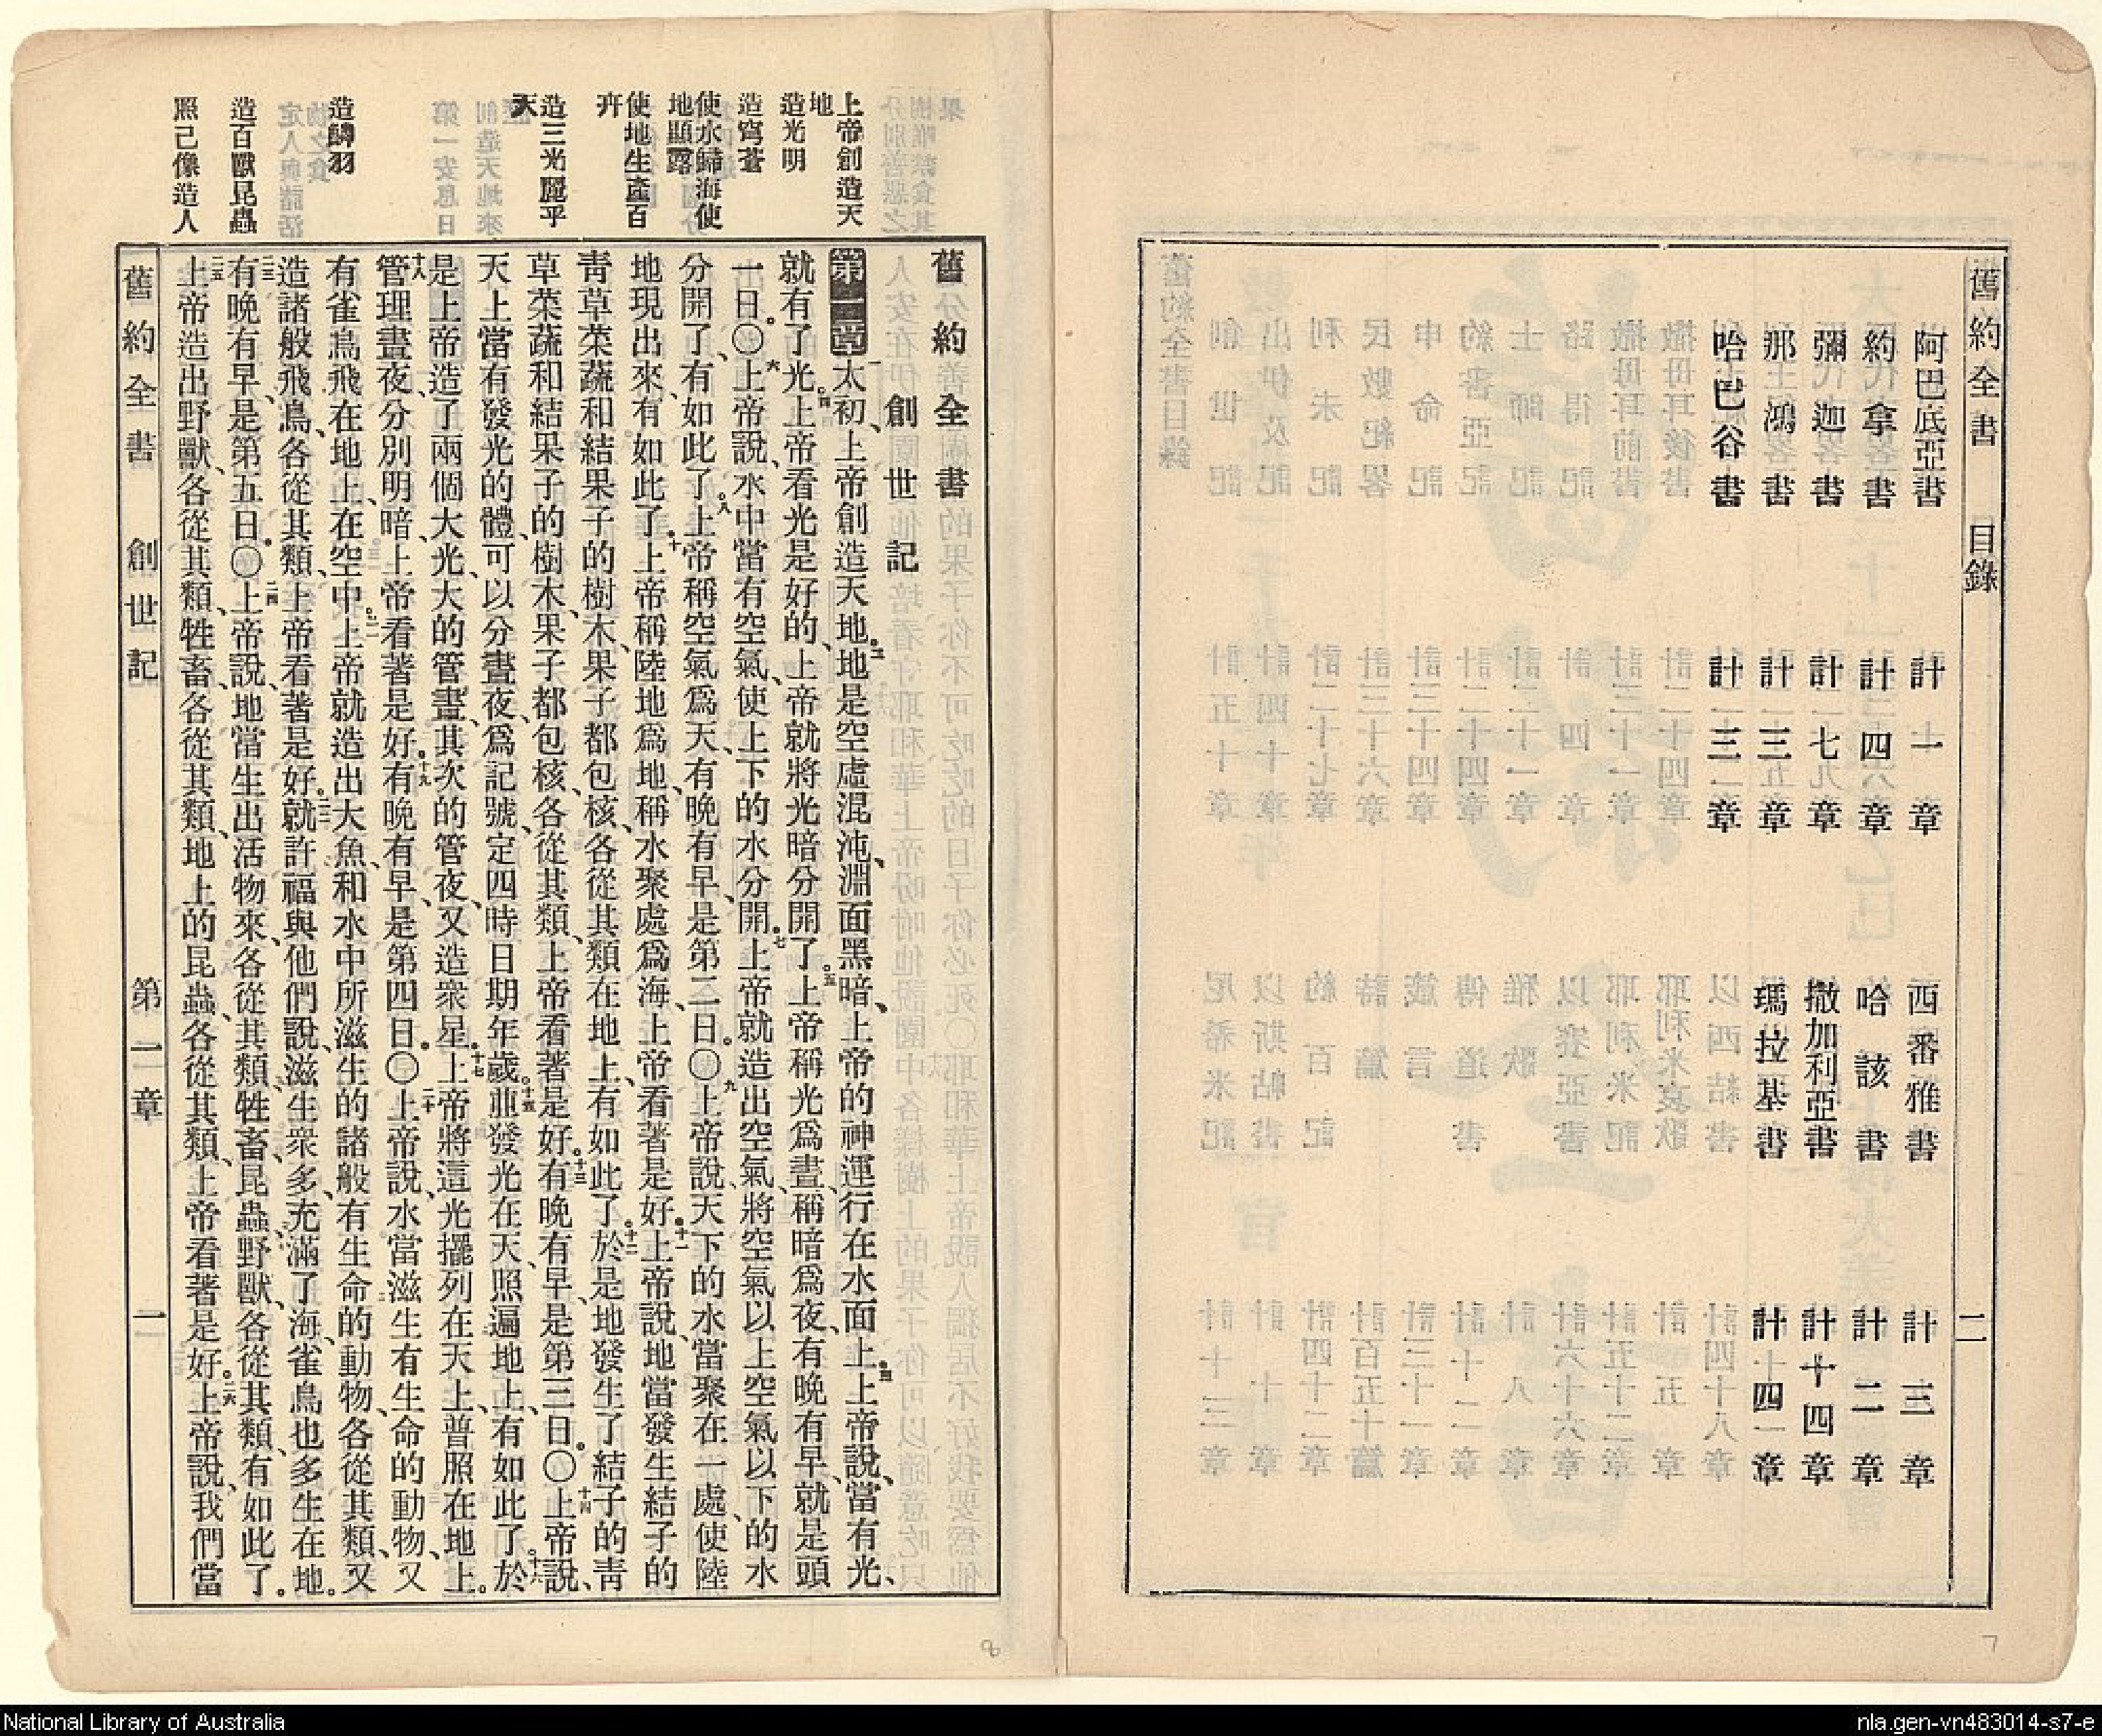 舊約全書 目錄 二
阿巴底亞書 計一章 西番雅書 計三章
約拿書 計四章 哈該書 計二章
彌迦書 計七章 撒加利亞書 計十四章
那鴻書 計三章 瑪拉基書 計四章
哈巴谷書 計三章
上帝創造天
地
造光明
造穹蒼
使水歸海使
地顯露
使地生產百
卉
造三光麗乎
天
造鱗羽
造百獸昆蟲
照己像造人
舊約全書
創世記
第一章 一太初、上帝創造天地。二地是空虛混沌、淵面黑暗、上帝的神運行在水面上。三上帝說、當有光、
就有了光。四上帝看光是好的、上帝就將光暗分開了。五上帝稱光爲晝、稱暗爲夜、有晚有早、就是頭
一日。〇六上帝說、水中當有空氣、使上下的水分開。七上帝就造出空氣、將空氣以上空氣以下的水
分開了、有如此了。八上帝稱空氣爲天、有晚有早、是第二日。〇九上帝說、天下的水當聚在一處、使陸
地現出來、有如此了。十上帝稱陸地爲地、稱水聚處爲海、上帝看著是好。十一上帝說、地當發生結子的
靑草菜蔬和結果子的樹木、果子都包核、各從其類在地上、有如此了。十二於是地發生了結子的靑
草菜蔬和結果子的樹木、果子都包核、各從其類、上帝看著是好。十三有晚有早、是第三日。〇十四上帝說、
天上當有發光的體、可以分晝夜、爲記號、定四時日期年歲。十五並發光在天、照遍地上、有如此了。十六於
是上帝造了兩個大光、大的管晝、其次的管夜、又造衆星。十七上帝將這光擺列在天上、普照在地上。
十八管理晝夜、分別明暗、上帝看著是好。十九有晚有早、是第四日。〇二十上帝說、水當滋生有生命的動物、又
有雀鳥飛在地上、在空中。二一上帝就造出大魚、和水中所滋生的諸般有生命的動物、各從其類、又
造諸般飛鳥、各從其類、上帝看著是好。二二就許福與他們說、滋生衆多、充滿了海、雀鳥也多生在地。
二三有晚有早、是第五日。〇二四上帝說、地當生出活物來、各從其類、牲畜、昆蟲、野獸、各從其類、有如此了。
二五上帝造出野獸、各從其類、牲畜、各從其類、地上的昆蟲、各從其類、上帝看著是好。二六上帝說、我們當
舊約全書 創世記 第一章 一
8
7
National Library of Australia
nla.gen-vn483014-s7-e